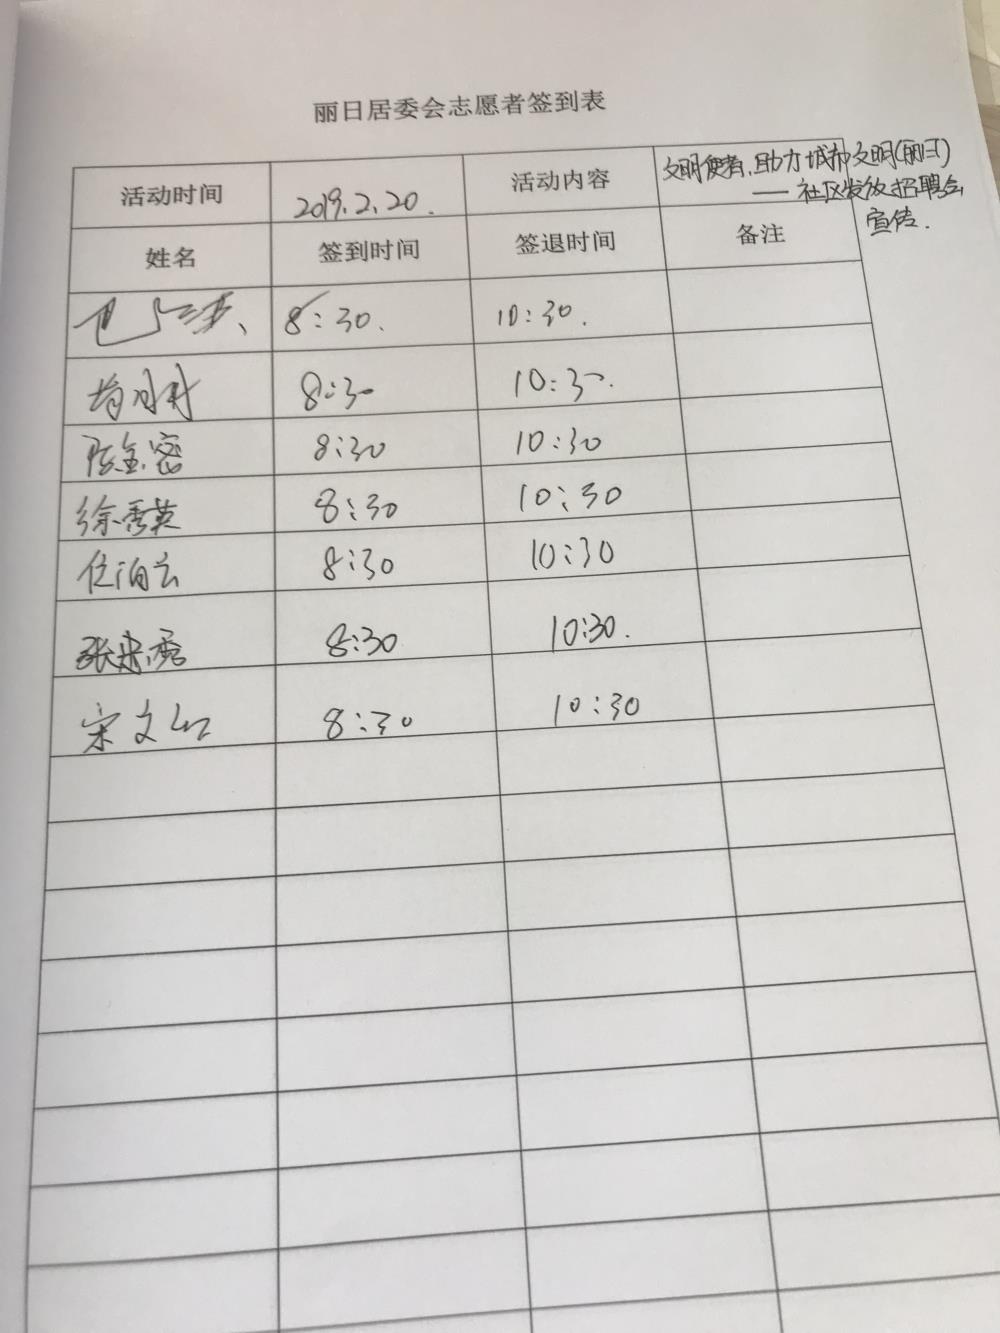 丽日居委会志愿者签到表
活动时间 2019.2.20. 活动内容 文明使者,助力城市文明(丽日)
——社区发放招聘会
宣传.
姓名 签到时间 签退时间 备注
8:30. 10:30.
8:30 10:30.
陈金密 8:30 10:30
徐秀英 8:30 10:30
任泊云 8:30 10:30
张忠秀 8:30 10:30.
宋文红 8:30 10:30